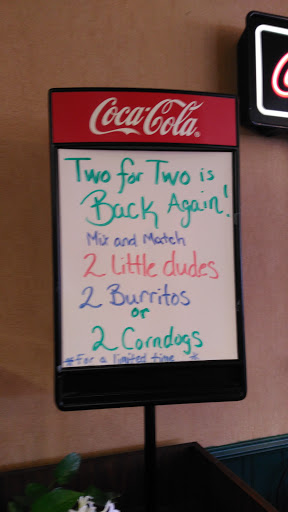 Coca-Cola
Two for Two is
Back Again!
Mix and Match
2 Little dudes
2 Burritos
or
2 Corndogs
*For a limited time *